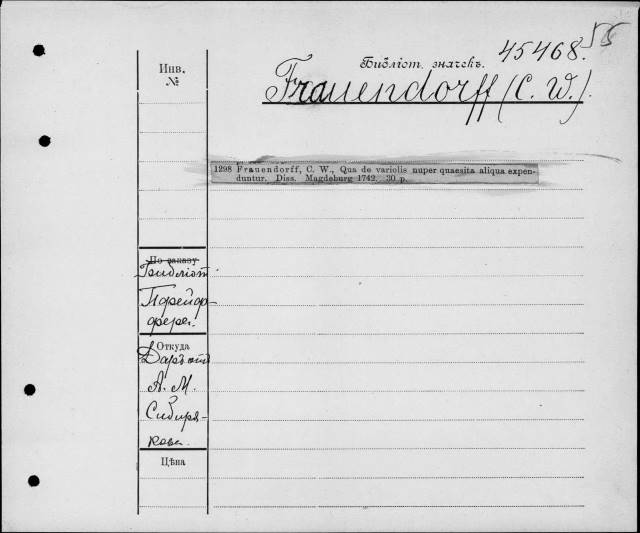 55
Библіот. значекъ. 45468.
Инв.
№
Frauendorff (C. W.).
1298 Frauendorff, C. W., Qua de variolis nuper quaesita aliqua expen-
duntur. Diss. Magdeburg 1742. 30 p.
По заказу
Библіот
Пфейф-
фера.
Откуда
Даръ отъ
А. М.
Сибиря-
кова.
Цѣна